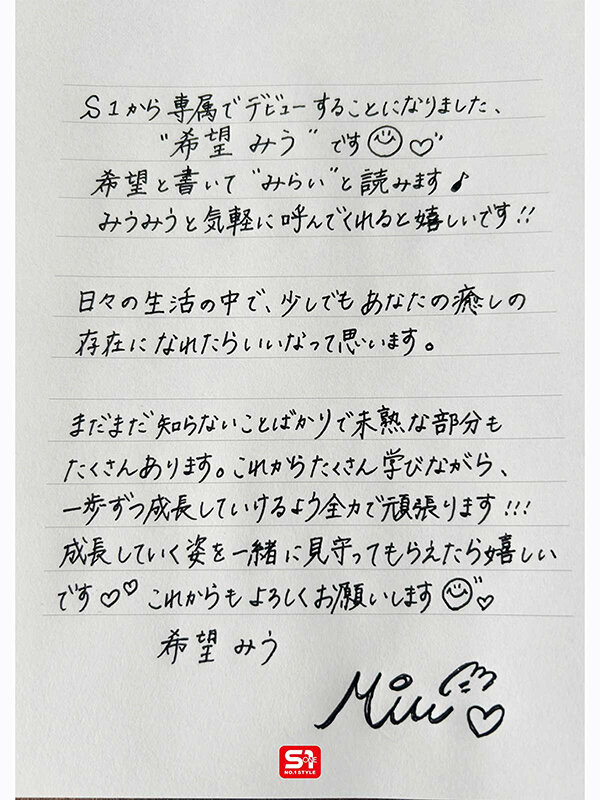 S1から専属でデビューすることになりました、
"希望 みう" です
希望と書いて "みらい" と読みます♪
みうみうと気軽に呼んでくれると嬉しいです!!
日々の生活の中で、少しでもあなたの癒しの
存在になれたらいいなって思います。
まだまだ知らないことばかりで未熟な部分も
たくさんあります。これからたくさん学びながら、
一歩ずつ成長していけるよう全力で頑張ります!!!
成長していく姿を一緒に見守ってもらえたら嬉しい
です♡♡ これからもよろしくお願いします
希望 みう
Miu
S1
ONE
NO.1 STYLE